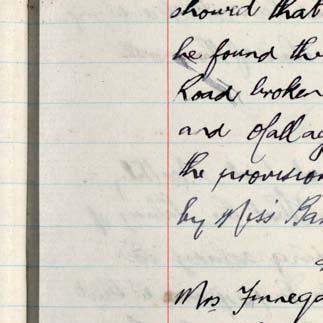 showed that
he found the
Road broken
and
the provision
by Miss Ba
Mrs Finnega